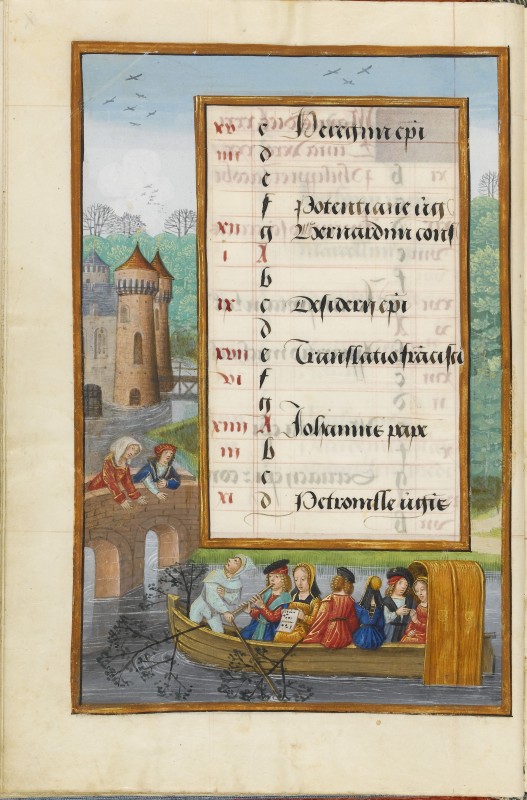 xv c Peregrini epi
iiii d
e
f Potentiane uig
xii g Bernardini conf
i A
b
ix c Desiderij epi
d
xvii e Translatio francisci
vi f
g
xiiii A Johannis pape
iii b
c
xi d Petronille uirgis